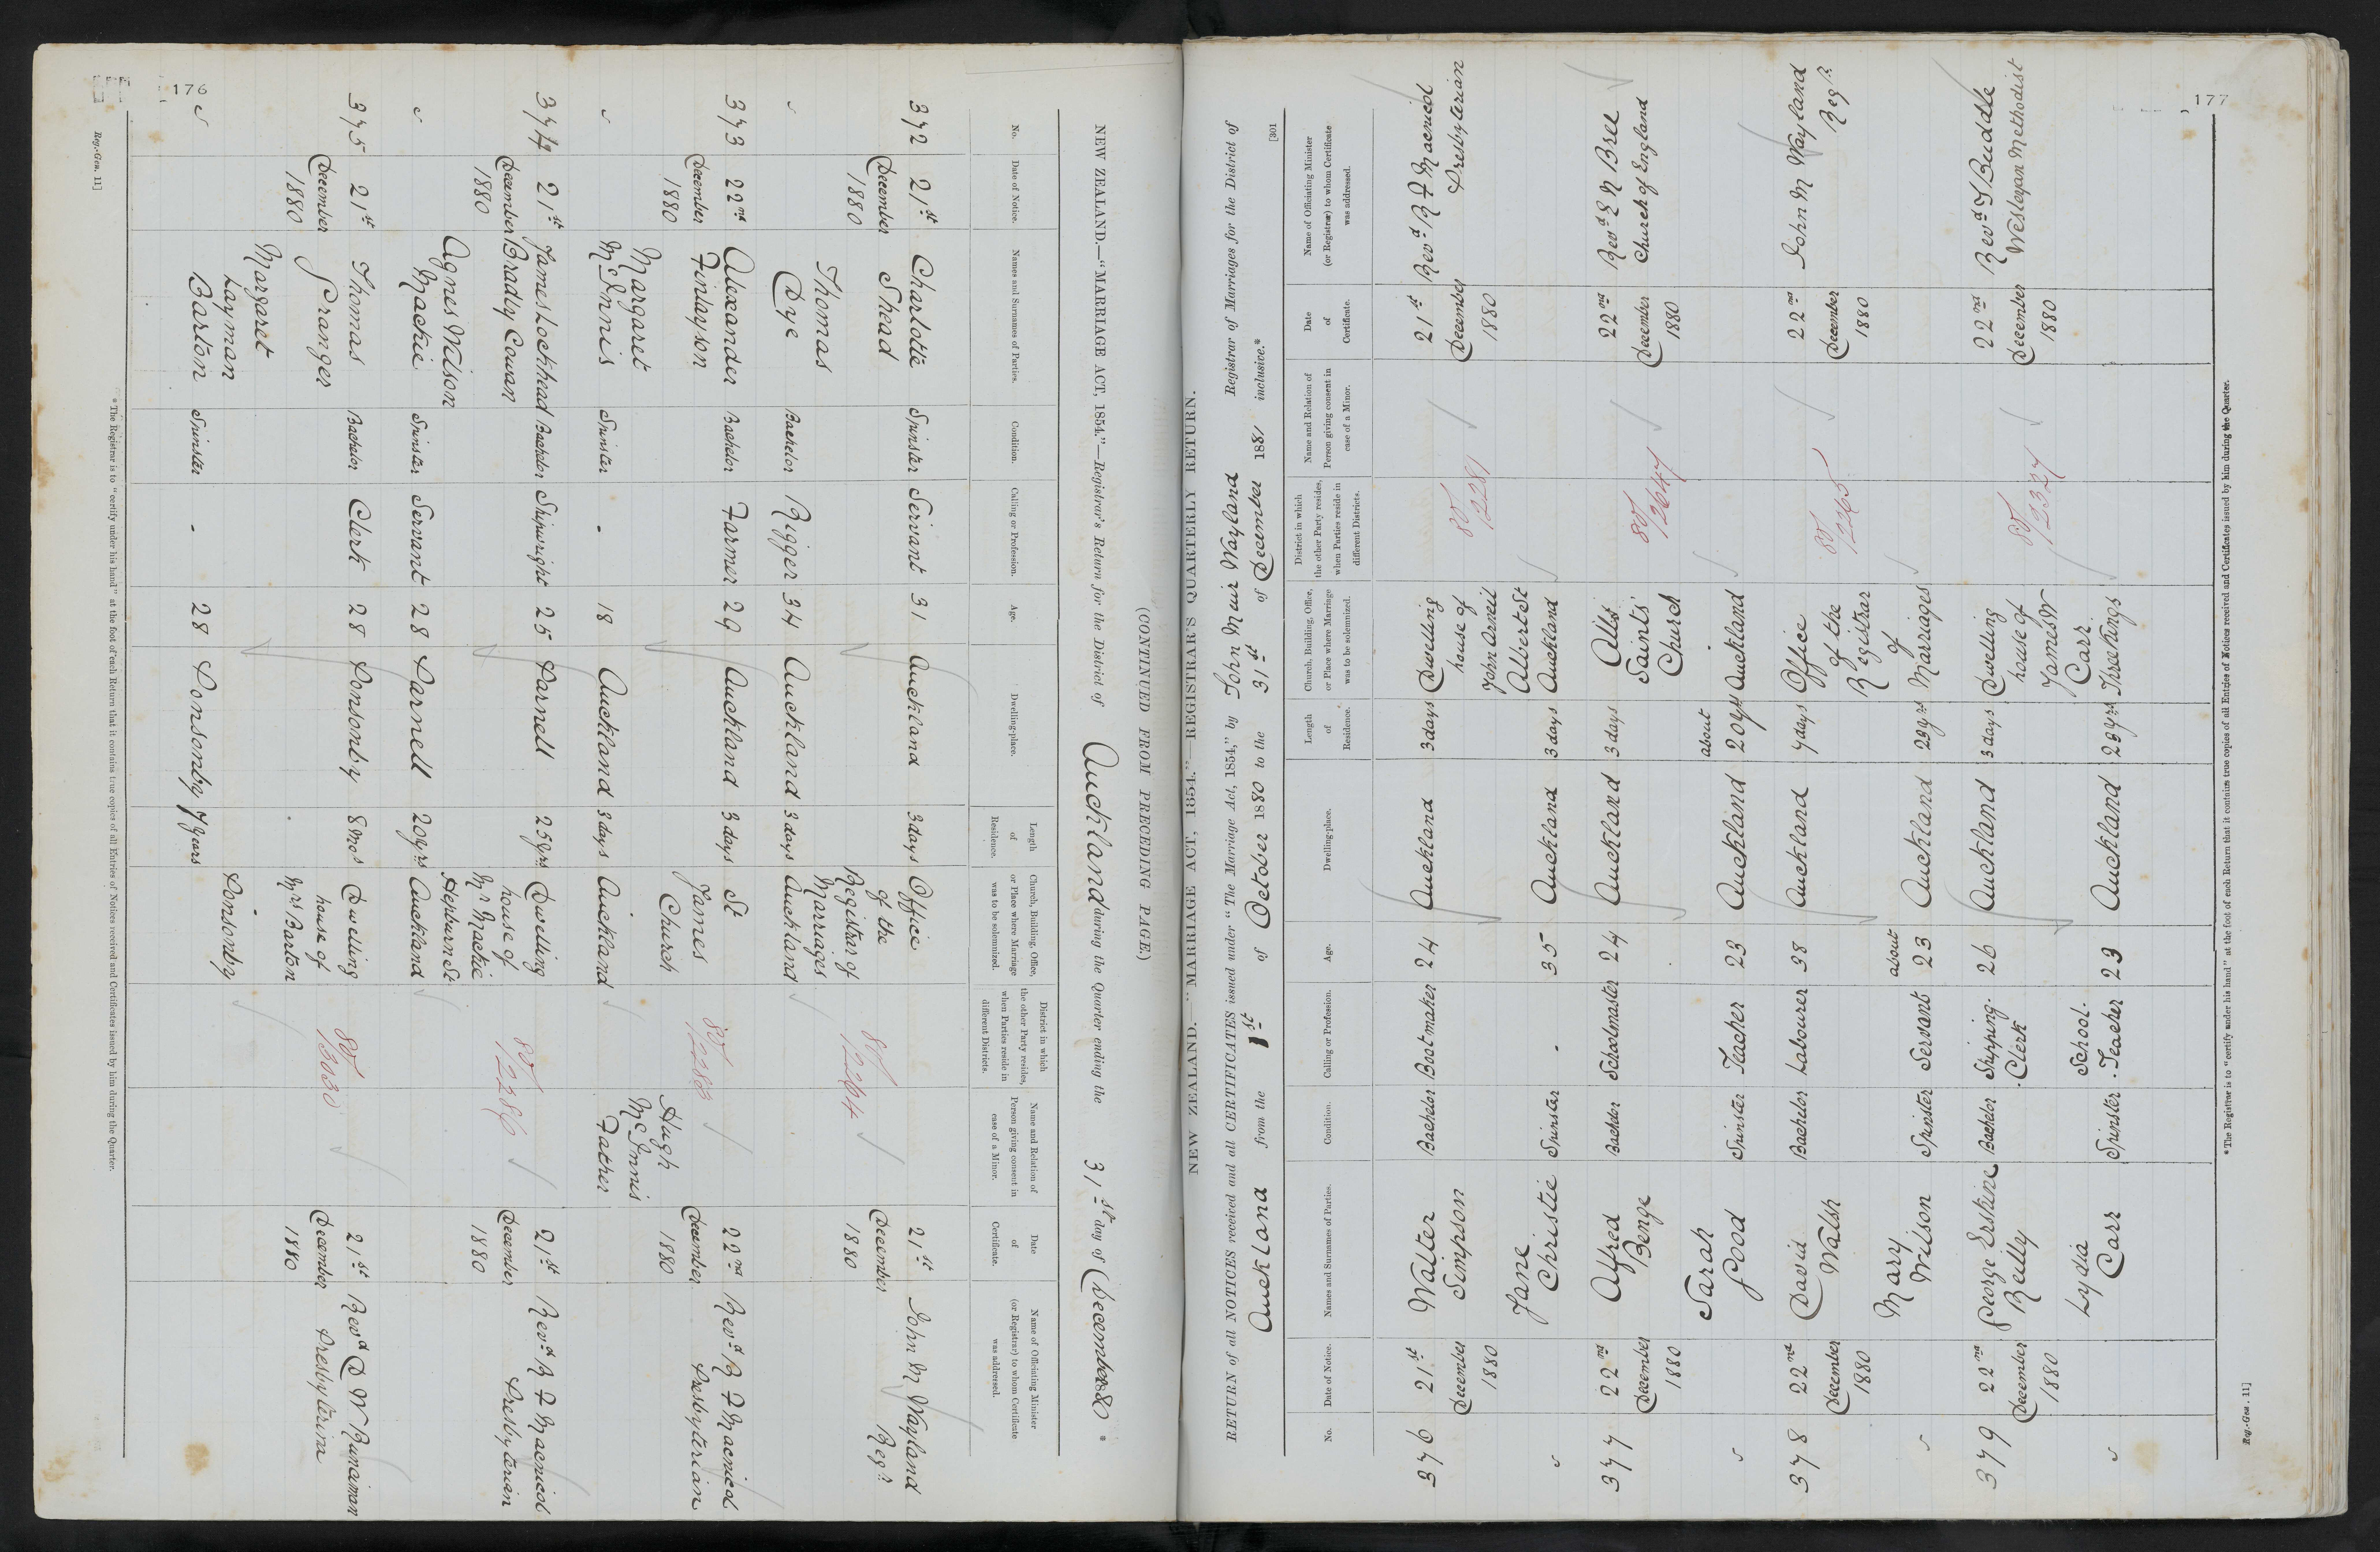 176
(CONTINUED FROM PRECEDING PAGE.)
NEW ZEALAND.—"MARRIAGE ACT, 1854."—Registrar's Return for the District of Auckland during the Quarter ending the 31st day of December 1880 *
No.
Date of Notice.
Names and Surnames of Parties.
Condition.
Calling or Profession.
Age.
Dwelling-place.
Length
of
Residence.
Church, Building, Office,
or Place where Marriage
was to be solemnized.
District in which
the other Party resides,
when Parties reside in
different Districts.
Name and Relation of
Person giving consent in
case of a Minor.
Date
of
Certificate.
Name of Officiating Minister
(or Registrar) to whom Certificate
was addressed.
372 21st Charlotte Spinster Servant 31 Auckland 3 days Office 21st John M Wayland
December Shead of the December Regr
1880 Registrar of 80/2264 1880
Thomas Marriages
Dye Bachelor Rigger 34 Auckland 3 days Auckland
373 22nd Alexander Bachelor Farmer 29 Auckland 3 days St 22nd Revd R F Macnicol
December Finlayson James 80/2283 December Presbyterian
1880 Church Hugh 1880
Margaret McInnis
McInnis Spinster - 18 Auckland 3 days Auckland Father
374 21st James Lockhead Bachelor Shipwright 25 Parnell 25 yrs Dwelling 21st Revd R F Macnicol
December Bradly Cowan house of 80/2286 December Presbyterian
1880 Mr Mackie 1880
Agnes Wilson Hepburn St
Mackie Spinster Servant 28 Parnell 20 yrs Auckland
375 21st Thomas Bachelor Clerk 28 Ponsonby 8 mos Dwelling 21st Revd D W Runciman
December Granger house of 80/3030 December Presbyterian
1880 Mrs Barton 1880
Margaret
Layman Ponsonby
Barton Spinster - 28 Ponsonby 7 years
* The Registrar is to "certify under his hand" at the foot of each Return that it contains true copies of all Entries of Notices received and Certificates issued by him during the Quarter.
Reg.-Gen. 11]
177
[301
NEW ZEALAND.—"MARRIAGE ACT, 1854."—REGISTRAR'S QUARTERLY RETURN.
RETURN of all NOTICES received and all CERTIFICATES issued under "The Marriage Act, 1854," by John Muir Wayland Registrar of Marriages for the District of
Auckland from the 1st of October 1880 to the 31st of December 1881 inclusive.*
No.
Date of Notice.
Names and Surnames of Parties.
Condition.
Calling or Profession.
Age.
Dwelling-place.
Length
of
Residence.
Church, Building, Office,
or Place where Marriage
was to be solemnized.
District in which
the other Party resides,
when Parties reside in
different Districts.
Name and Relation of
Person giving consent in
case of a Minor.
Date
of
Certificate.
Name of Officiating Minister
(or Registrar) to whom Certificate
was addressed.
376 21st Walter Bachelor Bootmaker 24 Auckland 3 days Dwelling 21st Revd R F Macnicol
December Simpson house of 80/2281 December Presbyterian
1880 John Arneil 1880
Jane Albert St
Christie Spinster - 35 Auckland 3 days Auckland
377 22nd Alfred Bachelor Schoolmaster 24 Auckland 3 days All 22nd Revd E N Bree
December Benge Saints' 80/2647 December Church of England
1880 Church 1880
Sarah about
Pood Spinster Teacher 23 Auckland 20 yrs Auckland
378 22nd David Bachelor Labourer 38 Auckland 7 days Office 22nd John M Wayland
December Walsh of the 80/2265 December Regr
1880 Registrar 1880
Mary about of
Wilson Spinster Servant 23 Auckland 23 yrs Marriages
379 22nd George Erskine Bachelor Shipping 26 Auckland 3 days Dwelling 22nd Revd T Buddle
December Reilly Clerk house of 80/2337 December Wesleyan Methodist
1880 James W 1880
Lydia School Carr
Carr Spinster Teacher 23 Auckland 23 yrs Three Kings
*The Registrar is to "certify under his hand" at the foot of each Return that it contains true copies of all Entries of Notices received and Certificates issued by him during the Quarter.
Reg.-Gen. 11]